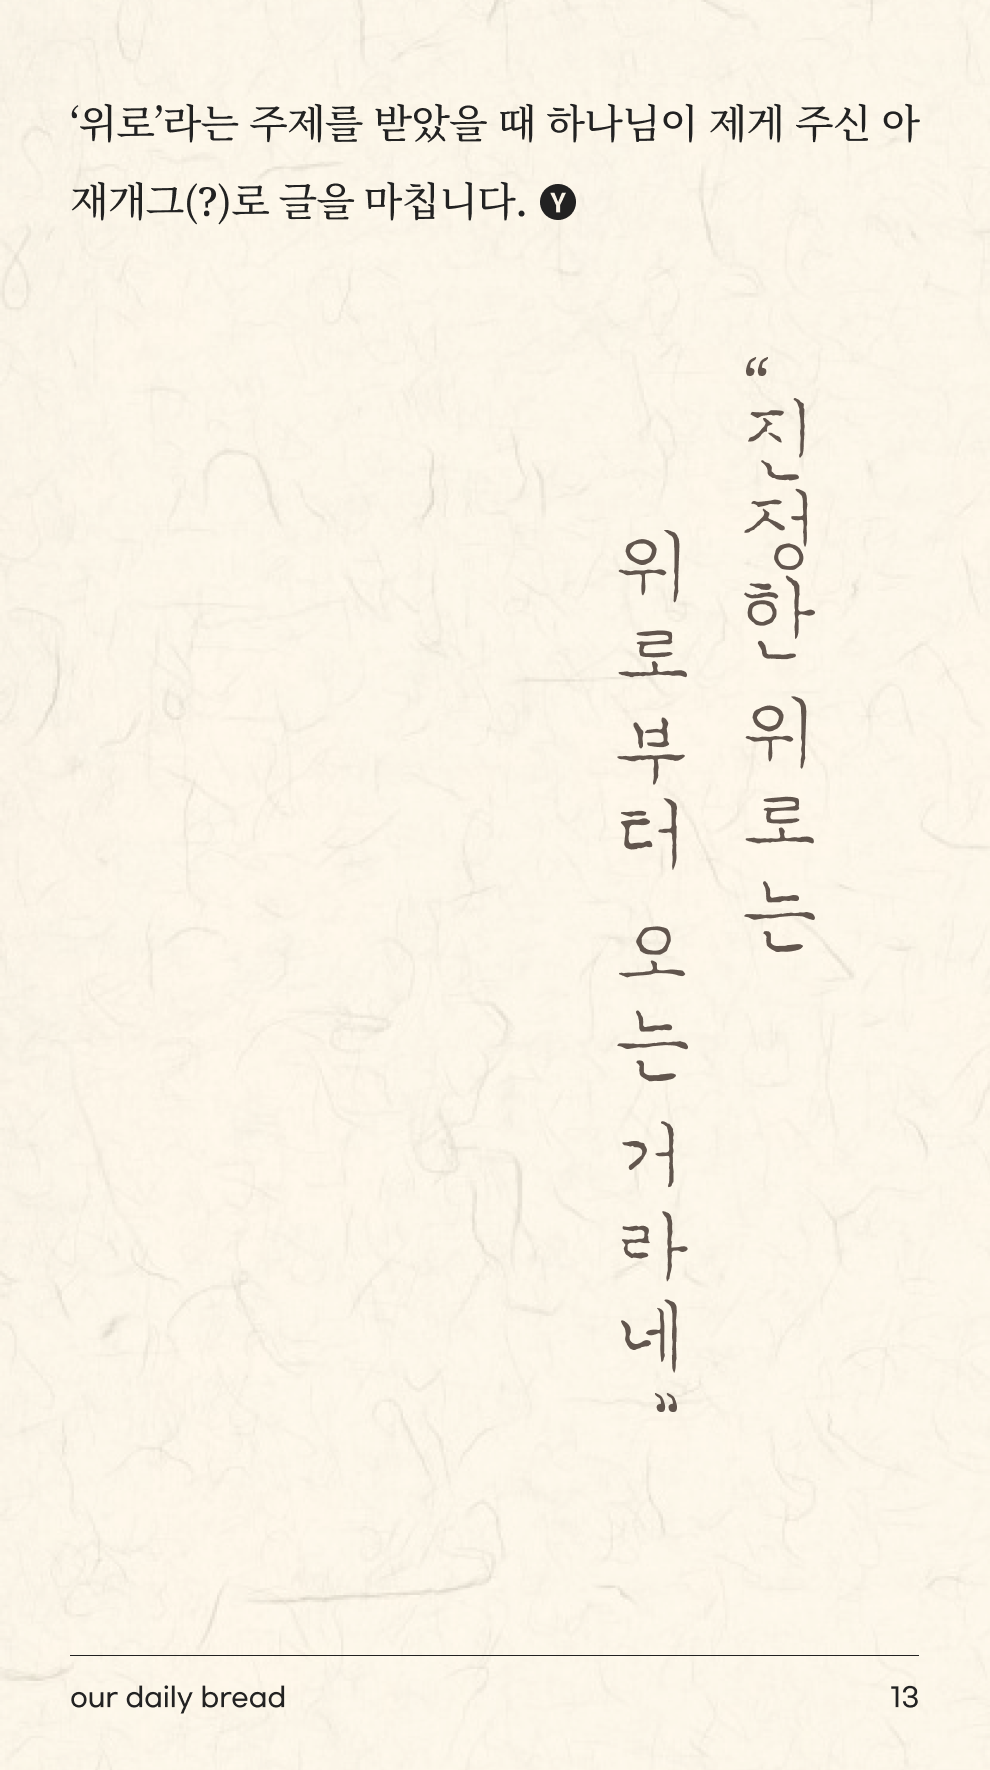 ‘위로’라는 주제를 받았을 때 하나님이 제게 주신 아
재개그(?)로 글을 마칩니다. Y
“진정한 위로는
위로부터 오는 거라네”
our daily bread
13